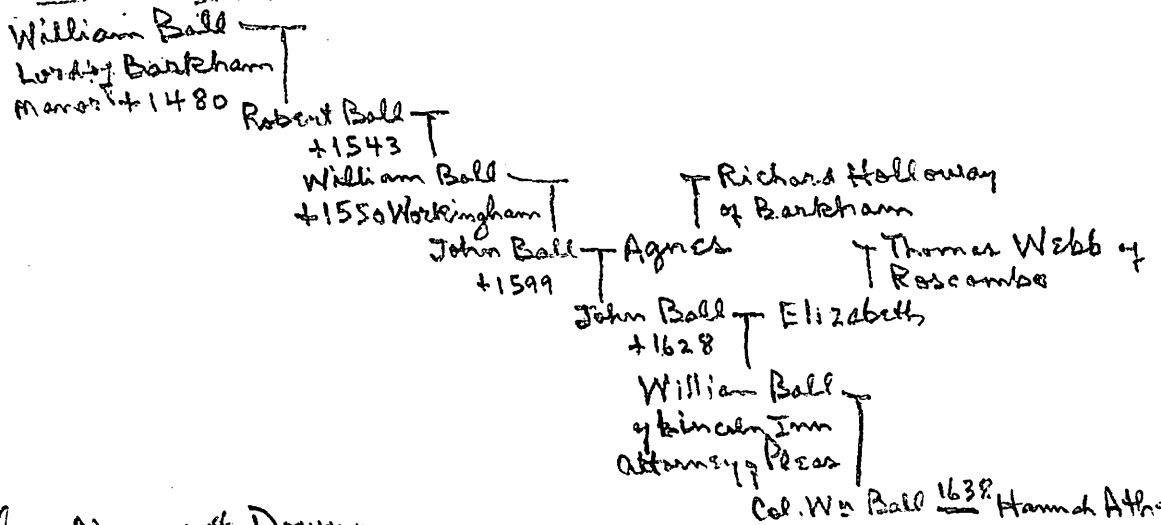 William Ball
Lord of Barkham
Manor +1480
Robert Ball
+1543
William Ball
+1550 Workingham
Richard Holloway
of Barkham
John Ball Agnes
+1599
Thomas Webb of
Roscombe
John Ball Elizabeth
+1628
William Ball
of Lincoln Inn
Attorney of Pleas
Col. Wm Ball 1638 Hannah